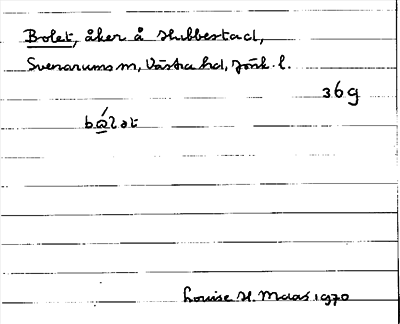 Bolet, åker å Hubbestad,
Svenarums sn, Västra hd, Jönk. l.
36g
bǻlet
Louise H. Maas 1970